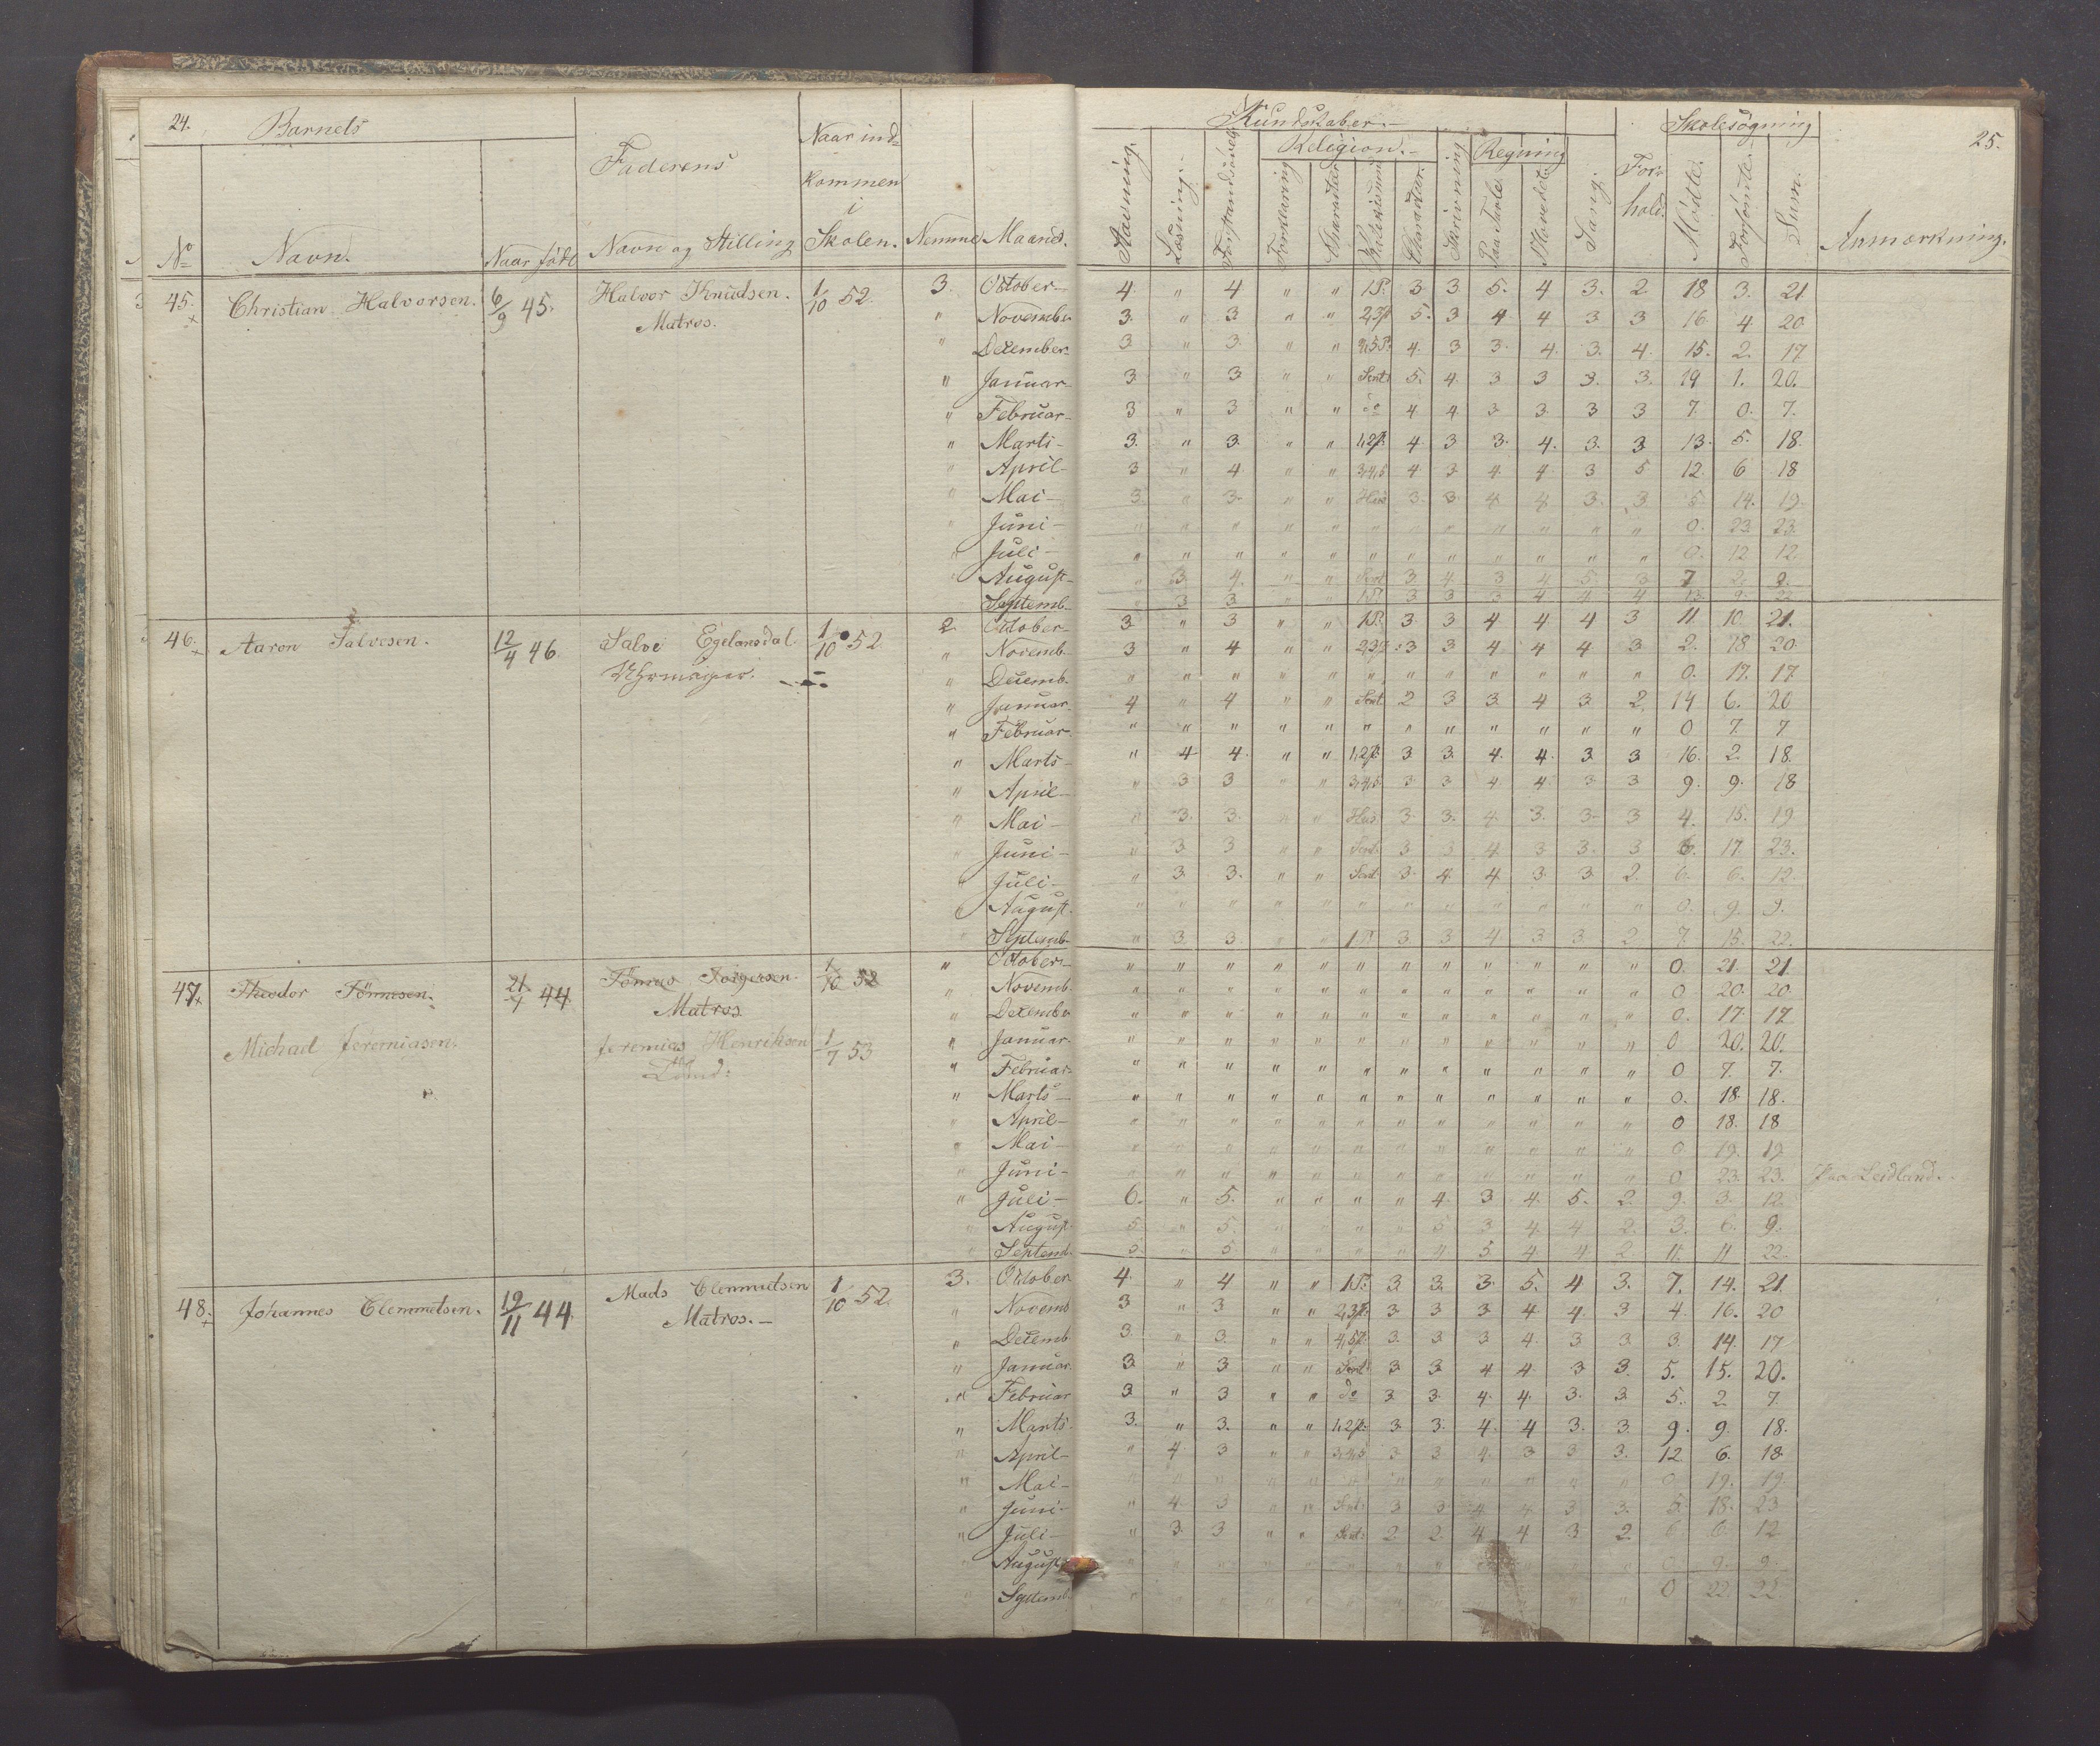 24. Barnets Naar ind= Kundskaber.- Skolesøgning 25.
Faderens kommen Religion.- Regning For=
i hold.
No Navn. Naar født Navn og Stilling Skolen. Nemme Maaned. Stavning. Læsning. Forstandsøvels Forklaring Charakter Bibelhistorie Charakter. Skrivning Paa Tavle Hovedet Sang. Mødte. Forsømte. Sum. Anmærkning.
45. Christian Halvorsen. 6/9 45. Halvor Knudsen. 1/10 52. 3. October- 4. " 4 " " 1P. 3 3 5. 4 3. 2 18 3. 21
Matros. " November 3. " 3 " " 2,3P 5. 3 4 4 3 3 16. 4. 20
" December- 3 " 3. " " 4,5P. 4. 3 3. 4. 3. 4. 15. 2. 17
" Januar- 3. " 3 " " Sent. 5. 4. 3 3 3. 3. 19 1. 20.
" Februar- 3 " 3 " " do 4 4 3 3. 3 3 7. 0. 7.
" Marts- 3. " 3. " " 1,2P. 4 3 3. 4. 3. 3 13. 5. 18.
" April- 3 " 4. " " 3,4,5 4 3 4. 4 3 5 12. 6 18
" Mai- 3. " 3. " " Hus. 3. 3. 4 4 3. 3 5. 14. 19.
" Juni- " " " " " " " " " " " " 0. 23. 23.
" Juli- " " " " " " " " " " " " 0. 12 12.
" August- " 3 4. " " Sent. 3 4. 3 4 5 3 7 2. 9.
Septemb- " 3 3 " " 1P. 3 3 3 4 4 4 13. 9. 22
46. Aaron Salvesen. 12/4 46. Salve Egelansdal 1/10 52 2. October- 3. " 3 " " 1P. 3 3 4 4 4 3 11. 10. 21.
Uhrmager. " Novemb. 3 " 4 " " 2,3P. 3 3 4 4 4 3 2. 18 20
" Decemb. " " " " " " " " " " " " 0. 17. 17
" Januar. 4 " 4 " " Sent 2 3 3. 4 3 2. 14 6. 20
" Februar. " " " " " " " " " " " " 0 7. 7
" Marts- " 4 4. " " 1,2P. 3 3. 4. 4. 3. 3 16. 2. 18.
" April- " 3 3 " " 3,4,5. 3 3 4 4 3 3 9. 9. 18
" Mai- " 3. 3. " " Hus. 3. 3. 4. 3. 3- 3 4. 15. 19
" Juni- " 3 3 " " Sent. 3 3 4. 3 3. 3 6. 17. 23.
" Juli- " 3 3. " " Sent. 3. 4. 4 3 3. 2. 6. 6. 12.
" August. " " " " " " " " " " " " 0. 9. 9.
" Septemb- " 3. 3. " " 1P. 3. 3. 4 3 3. 2. 7. 15. 22.
47. Theodor Tønnesen. 21/1 44 Tønnes Torgersen. 1/10 52 " October- " " " " " " " " " " " " 0. 21. 21.
Matros. " Novemb. " " " " " " " " " " " " 0 20. 20.
" December " " " " " " " " " " " " 0. 17. 17
Michael Jeremiasen. Jeremias Henriksen 1/7 53 " Januar. " " " " " " " " " " " " 0 20. 20.
Lund. " Februar. " " " " " " " " " " " " 0 7. 7.
" Marts- " " " " " " " " " " " " 0. 18. 18.
" April- " " " " " " " " " " " " 0 18. 18
" Mai- " " " " " " " " " " " " 0 19. 19
" Juni- " " " " " " " " " " " " 0 23. 23.
" Juli- 6. " 5. " " " " 4. 3 4. 5. 2. 9. 3. 12.
" August. 5 " 5 " " " " 5 3 4. 4 2. 3. 6. 9.
" Septemb. 5. " 5 " " " " 4. 5 4 4. 2. 11. 11 22.
48. Johannes Clemmetsen. 19/11 44. Mads Clemmetsen 1/10 52. 3. October 4. " 4 " " 1P. 3. 3. 3. 5. 4 3. 7. 14. 21.
Matros.- " Novemb 3 " 3 " " 2,3P. 3. 3 3 4 4. 3 4. 16. 20
" Decemb 3. " 3. " " 4,5P. 3. 3 3 4. 3 3. 3. 14. 17
" Januar. 3. " 3 " " Sent. 3 3 4 4. 3 3. 5. 15. 20.
" Februar 3 " 3 " " do 3 3. 4. 4. 3. 3 5. 2. 7.
" Marts- 3. " 3. " " 1,2P. 3. 3. 4. 4 3. 3. 9. 9. 18.
" April- " 4. 3 " " 3,4,5 3 3 4. 3 3 3. 12. 6. 18.
" Mai- " " " " " " " " " " " " 0 19. 19.
" Juni- " 4. 3 " " Sent. 3 3 4 4 3 3. 5. 18. 23
" Juli- " 3. 3 " " Sent. 2 2. 4 4 3 2. 6 6. 12
" August " " " " " " " " " " " " 0 9. 9.
" Septemb. " " " " " " " " " " " " 0 22. 22.